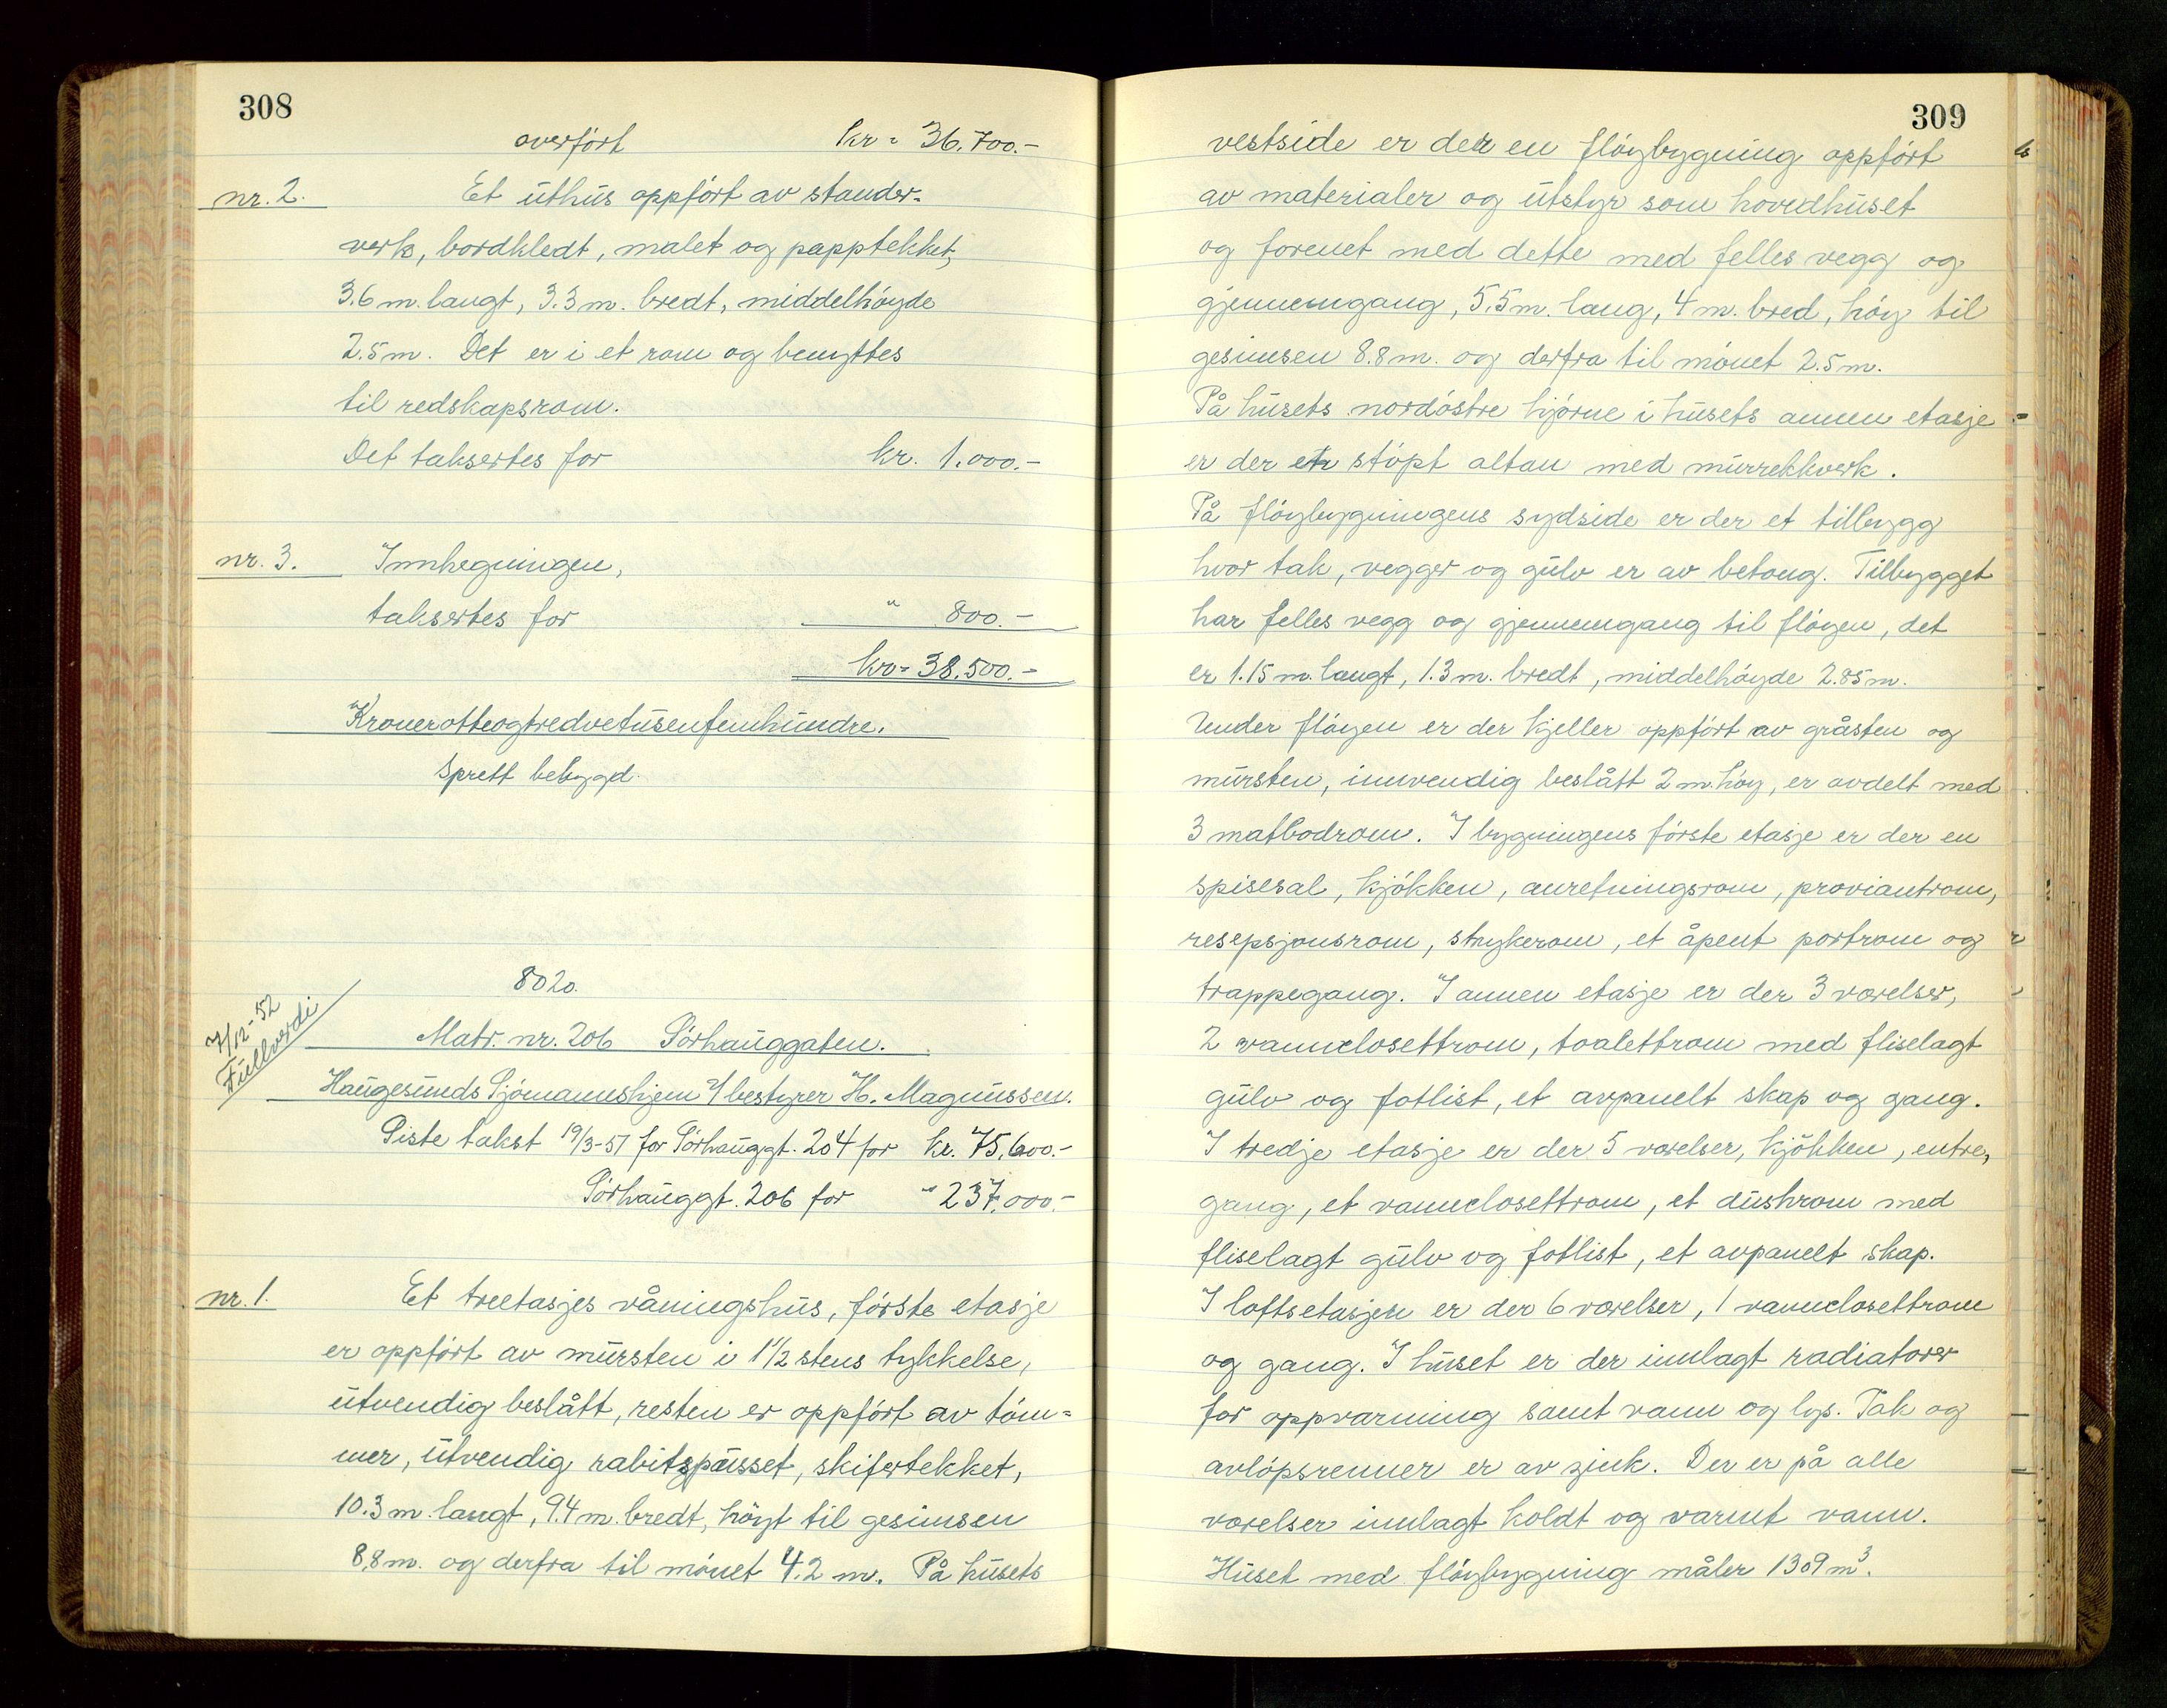 308
overført kr = 36.700.-
nr. 2. Et uthus oppført av stander-
verk, bordkledt, malet og papptekket,
3.6 m. langt, 3.3 m. bredt, middelhøyde
2.5 m. Det er i et rom og benyttes
til redskapsrom.
Det takseres for kr. 1.000.-
nr. 3. Innhegningen,
takseres for " 800.-
kr = 38.500.-
Kronerotteogtredvetusenfemhundre.
Sprett bebygd.
8020.
7/12-52
Fullverdi
Matr. nr. 206 Sørhauggaten.
Haugesunds Sjømannshjem v/ bestyrer H. Magnussen.
Siste takst 19/3-51 for Sørhauggt. 204 for kr. 75.600.-
Sørhauggt. 206 for " 237.000.-
nr. 1. Et treetasjes våningshus, første etasje
er oppført av mursten i 1 1/2 stens tykkelse,
utvendig beslått, resten er oppført av töm=
mer, utvendig rabitspusset, skifertekket,
10.3 m. langt, 9.4 m. bredt, høyt til gesimsen
8.8 m. og derfra til mønet 4.2 m. På husets
309
vestside er der en fløybygning oppført
av materialer og utstyr som hovedhuset
og forenet med dette med felles vegg og
gjennemgang, 5.5 m. lang, 4 m. bred, høy til
gesimsen 8.8 m. og derfra til mønet 2.5 m.
På husets nordøstre hjørne i husets annen etasje
er der en støpt altan med murrekkverk.
På fløybygningens sydside er der et tilbygg
hvor tak, vegger og gulv er av betong. Tilbygget
har felles vegg og gjennemgang til fløyen, det
er 1.15 m. langt, 1.3 m. bredt, middelhøyde 2.85 m.
Under fløyen er der kjeller oppført av gråsten og
mursten, innvendig beslått 2 m. høy, er avdelt med
3 matbodrom. I bygningens første etasje er der en
spisesal, kjøkken, anretningsrom, proviantrom,
resepsjonsrom, strykerom, et åpent portrom og
trappegang. I annen etasje er der 3 værelser,
2 vannclosettrom, toalettrom med fliselagt
gulv og fotlist, et avpanelt skap og gang.
I tredje etasje er der 5 værelser, kjøkken, entre,
gang, et vannclosettrom, et dushrom med
fliselagt gulv og fotlist, et avpanelt skap.
I loftsetasjen er der 6 værelser, 1 vannclosettrom
og gang. I huset er der innlagt radiatorer
for oppvarming samt vann og lys. Tak og
avløpsrenner er av zink. Der er på alle
værelser innlagt koldt og varmt vann.
Huset med fløybygning måler 1309 m³.